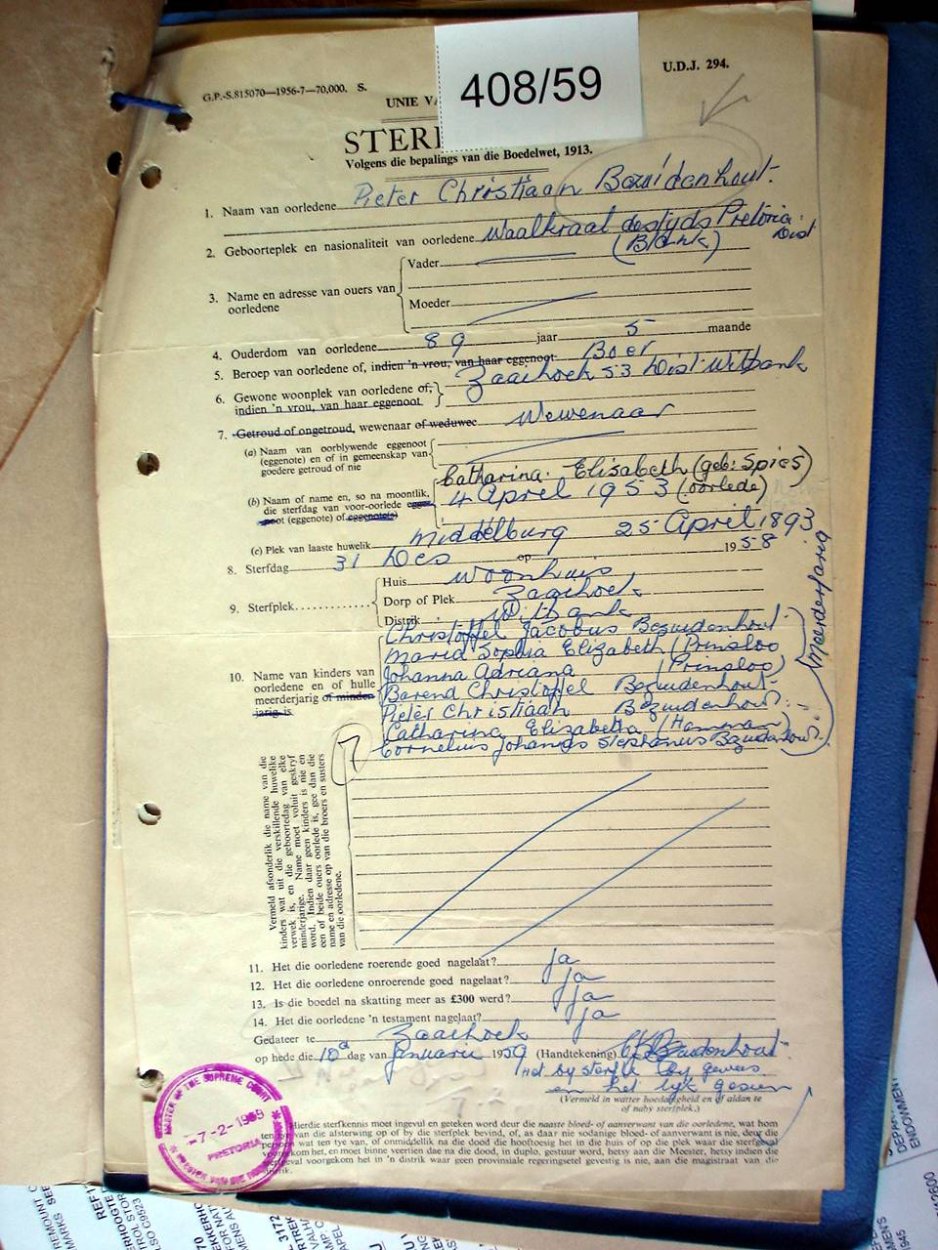 408/59
U.D.J. 294.
G.P.-S.815070—1956-7—70,000. S.
UNIE VA
STERF
Volgens die bepalings van die Boedelwet, 1913.
1. Naam van oorledene Pieter Christiaan Bezuidenhout.
2. Geboorteplek en nasionaliteit van oorledene Waalkraal destyds Pretoria Dist
(Blank)
3. Name en adresse van ouers van oorledene
Vader
Moeder
4. Ouderdom van oorledene 89 jaar 5 maande
5. Beroep van oorledene of, indien 'n vrou, van haar eggenoot Boer
6. Gewone woonplek van oorledene of, indien 'n vrou, van haar eggenoot Zaaihoek 53 Dist Witbank
7. Getroud of ongetroud, wewenaar of weduwee Wewenaar
(a) Naam van oorblywende eggenoot
(eggenote) en of in gemeenskap van
goedere getroud of nie
(b) Naam of name en, so na moontlik,
die sterfdag van voor-oorlede eggenoot (eggenote) of eggenote(s)
Catharina Elisabeth (geb: Spies)
4 April 1953 (oorlede)
(c) Plek van laaste huwelik Middelburg 25 April 1893
8. Sterfdag 31 Des op 1958
9. Sterfplek
Huis woonhuis
Dorp of Plek Zaaihoek
Distrik Witbank
10. Name van kinders van
oorledene en of hulle
meerderjarig of minderjarig is
Christoffel Jacobus Bezuidenhout
Maria Sophia Elizabeth (Prinsloo
Johanna Adriana (Prinsloo)
Barend Christoffel Bezuidenhout
Pieter Christiaan Bezuidenhout
Catharina Elizabetha (Hamman)
Cornelius Johannes Stephanus Bezuidenhout
Meerderjarig
7
Vermeld afsonderlik die name van die
kinders wat uit die verskillende huwelike
verwek is, en die geboortedag van elke
minderjarige. Name moet voluit geskryf
word. Indien daar geen kinders is nie en
een of beide ouers oorlede is, gee dan die
name en adresse op van die broers en susters
van die oorledene.
11. Het die oorledene roerende goed nagelaat? Ja
12. Het die oorledene onroerende goed nagelaat? Ja
13. Is die boedel na skatting meer as £300 werd? Ja
14. Het die oorledene 'n testament nagelaat? Ja
Gedateer te Zaaihoek
op hede die 10de dag van Januarie 1959 (Handtekening) Bezuidenhout
Het by sterfte
en het lyk gesien
(Vermeld in watter hoedanigheid en of aldan te
of naby sterfplek.)
Hierdie sterfkennis moet ingevul en geteken word deur die naaste bloed- of aanverwant van die oorledene, wat hom
ten tye van die afsterwing op of by die sterfplek bevind, of, as daar nie sodanige bloed- of aanverwant is nie, deur die
persoon wat ten tye van, of onmiddellik na die dood die hooftoesig het in die huis of op die plek waar die sterfgeval
voorgekom het, en moet binne veertien dae na die dood, in duplo, gestuur word, hetsy aan die Meester, hetsy indien die
sterfgeval voorgekom het in 'n distrik waar geen provinsiale regeringsetel gevestig is nie, aan die magistraat van die
distrik.
MASTER OF THE SUPREME COURT
-7-2-1959
PRETORIA